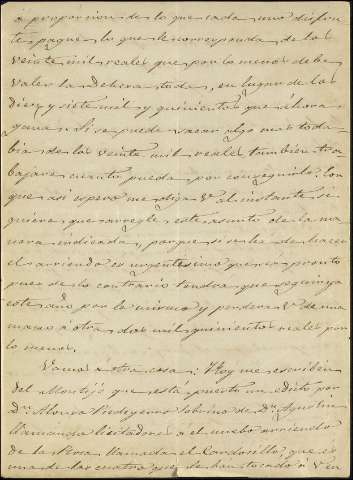 á proporcion de lo que cada uno disfru-
te pague lo que le corresponda de los
veinte mil reales que por lo menos debe
valer la dehesa toda, en lugar de los
diez y siete mil y quinientos que ahora
gana. Si se puede sacar algo mas toda-
bia de los veinte mil reales tambien tra-
bajare cuanto pueda por conseguirlo. Con
que asi espero me diga V al instante si
quiere que arregle este asunto de la ma
nera indicada, porque si se ha de hacer
el arriendo es urgentisimo que sea pronto
pues de lo contrario tendra que seguir ya
este año por lo mismo y perdera V de una
mano á otra dos mil quinientos reales por
lo menos.
Vamos á otra cosa: Hoy me escriben
del Montijo que está puesto un edicto por
Dn Alonso sobrino de Dn Agustin
llamando licitadores á el nuebo arriendo
de la llamada el que es
una de las cuatro que se han tocado á V en